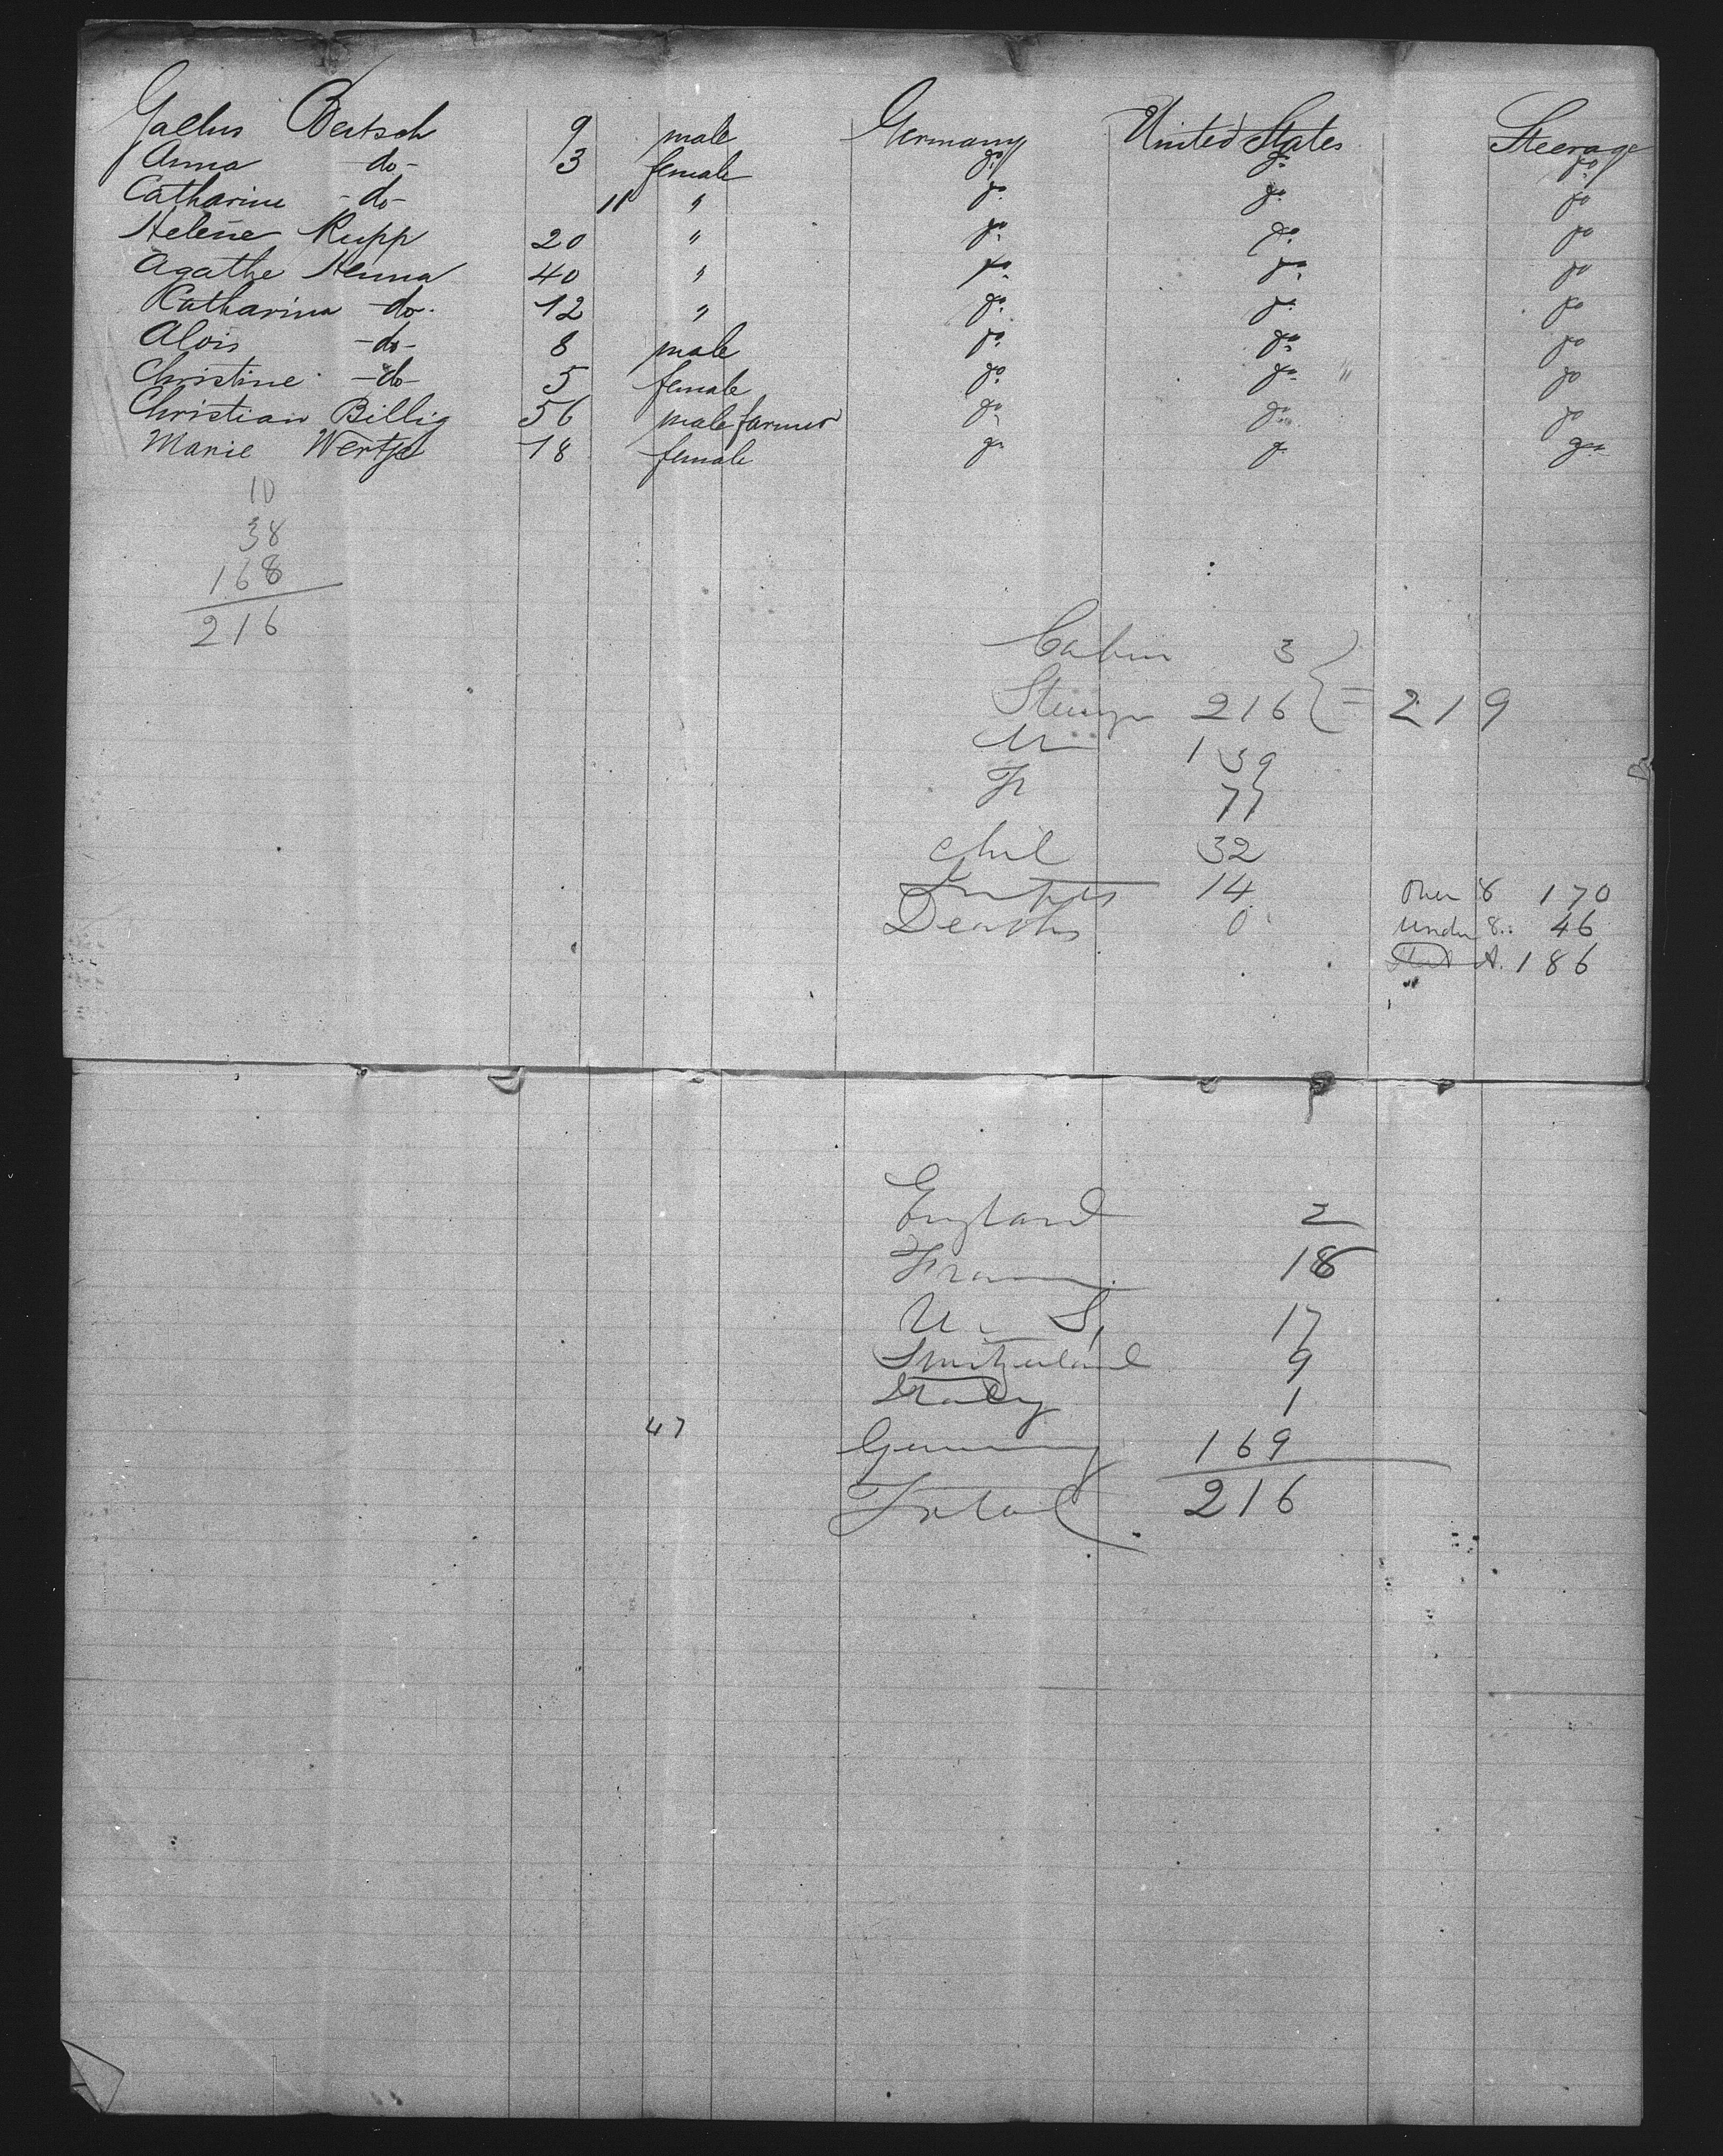 Gallus Bertsch 9 male Germany United States Steerage
Anna -do- 3 female do do do
Catharine -do- 11 " do do do
Helene Rupp 20 " do do do
Agathe Henna 40 " do do do
Katharina -do- 12 " do do do
Alois -do- 8 male do do do
Christine -do- 5 female do do " do
Christian Billig 56 male farmer do do do
Marie 18 female do do do
10
38
168
216
Cabin 3
Steerage 216 } = 219
M 139
F 77
Chil 32
Infts 14
Deaths 0
Over 8 170
Under 8 46
A. 186
England 2
France 18
U. S. 17
Switzerland 9
Italy 1
47
Germany 169
Total 216